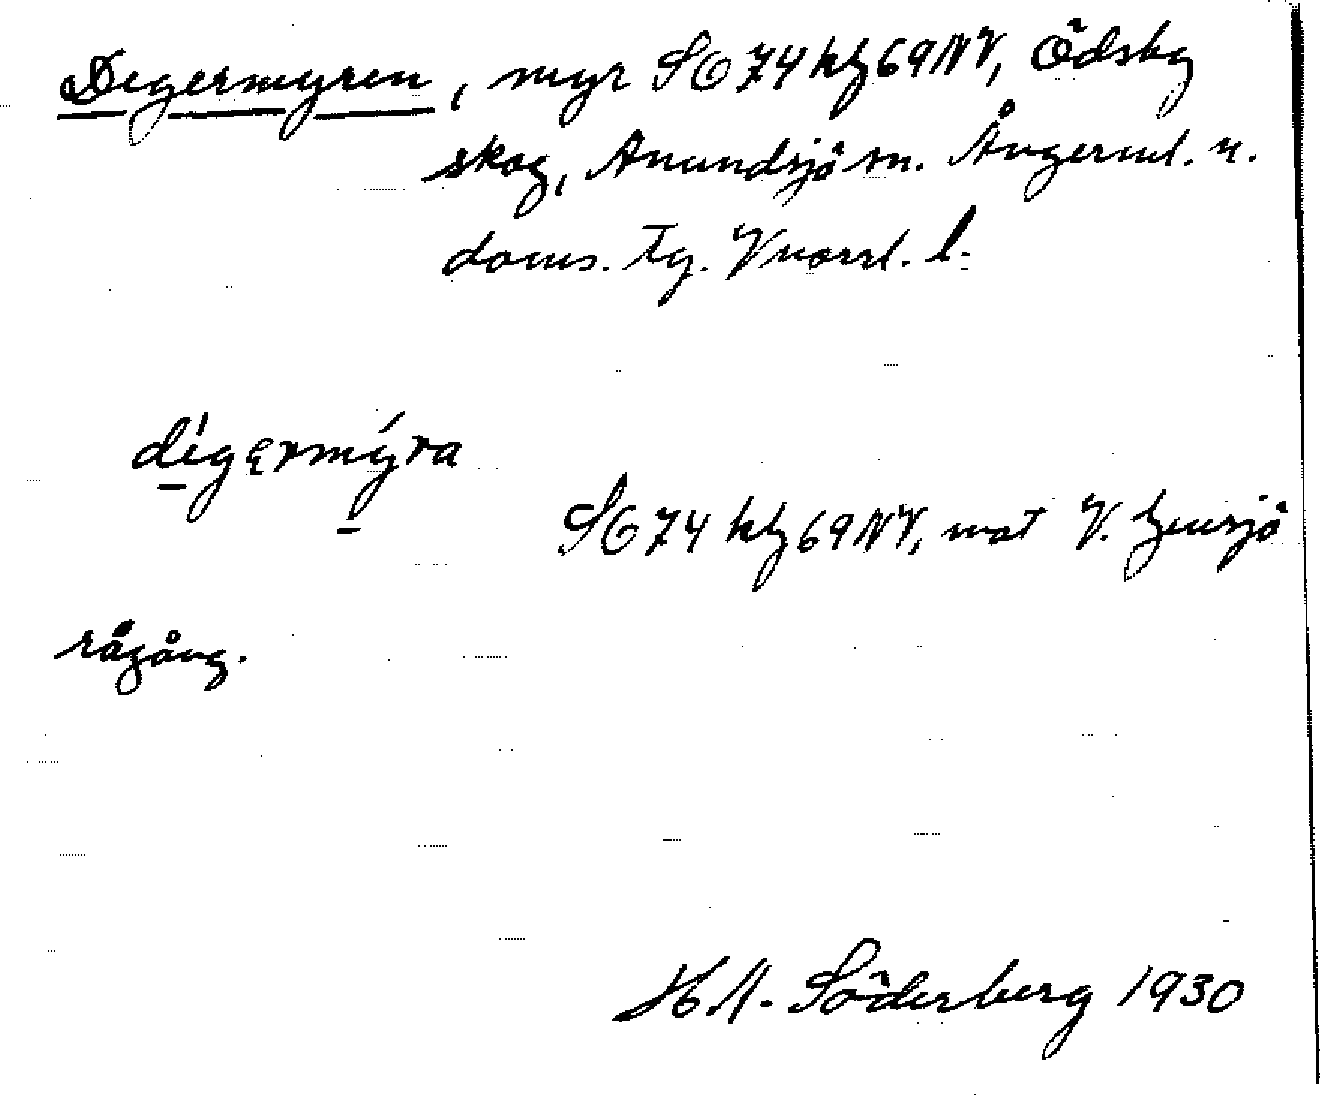 Degermyren, myr SO 74 kh 69 NV, Ödsby
skog, Anundsjö sn. Ångerml. n.
doms. tg. Vnorrl. l.
dígęrmýra
SO 74 kh 69 NV, mot V.
rågång.
H.A. Söderberg 1930